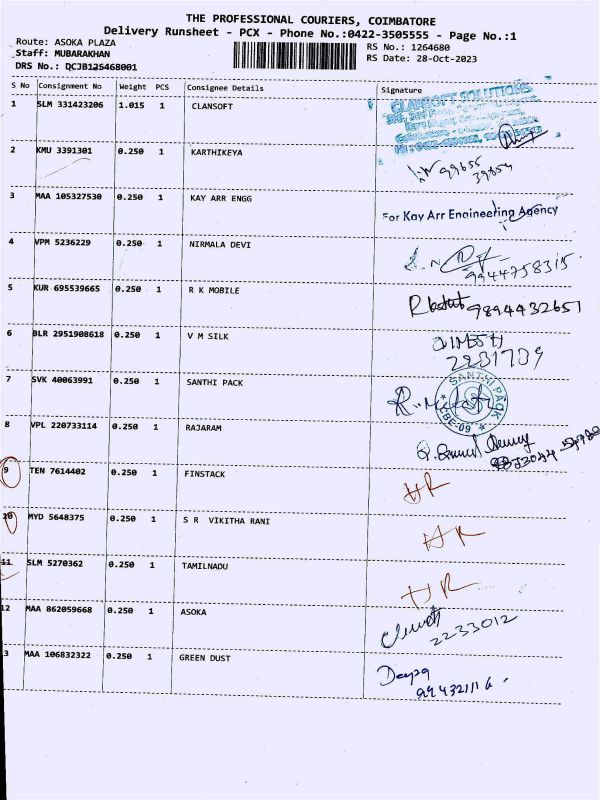 THE PROFESSIONAL COURIERS, COIMBATORE
Delivery Runsheet - PCX - Phone No.:0422-3505555 - Page No.:1
Route: ASOKA PLAZA
Staff: MUBARAKHAN
DRS No.: DCJB125468001
RS No.: 1264680
RS Date: 28-Oct-2023
S No Consignment No Weight PCS Consignee Details Signature
1 SLM 331423206 1.015 1 CLANSOFT CLANSOFT SOLUTIONS
2 KMU 3391301 0.250 1 KARTHIKEYA 99655
3 MAA 105327530 0.250 1 KAY ARR ENGG For Kay Arr Engineering Agency
4 VPM 5236229 0.250 1 NIRMALA DEVI 9944758315
5 KUR 695539665 0.250 1 R K MOBILE 9894432651
6 BLR 2951908618 0.250 1 V M SILK 2231709
7 SVK 40063991 0.250 1 SANTHI PACK SANTHI PACK CBE-09
8 VPL 220733114 0.250 1 RAJARAM
9 TEN 7614402 0.250 1 FINSTACK HR
10 MYD 5648375 0.250 1 S R VIKITHA RANI HR
11 SLM 5270362 0.250 1 TAMILNADU HR
12 MAA 862059668 0.250 1 ASOKA 2233012
3 MAA 106832322 0.250 1 GREEN DUST Deepa